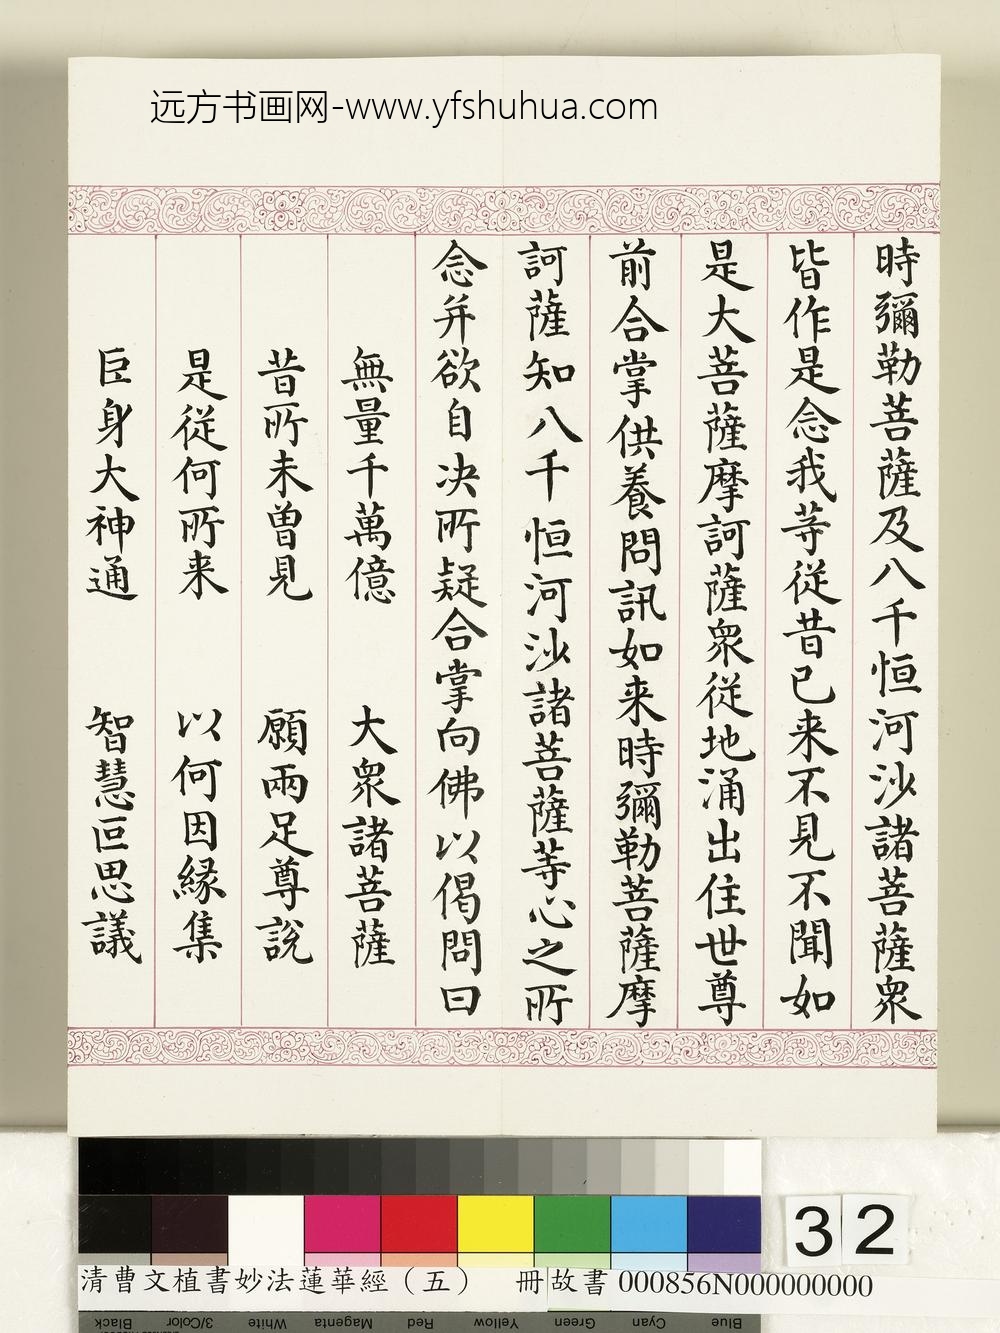 远方书画网-www.yfshuhua.com
時彌勒菩薩及八千恒河沙諸菩薩衆
皆作是念我等従昔已来不見不聞如
是大菩薩摩訶薩衆従地涌出住世尊
前合掌供養問訊如来時彌勒菩薩摩
訶薩知八千恒河沙諸菩薩等心之所
念并欲自决所疑合掌向佛以偈問曰
無量千萬億 大衆諸菩薩
昔所未曽見 願兩足尊說
是従何所来 以何因緣集
巨身大神通 智慧叵思議
32
清曹文植書妙法蓮華經（五） 冊 故書000856N000000000
Black 3/Color White Magenta Red Yellow Green Cyan Blue